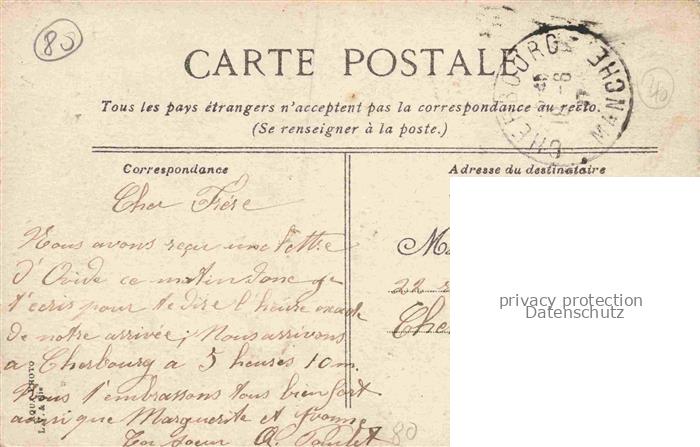 80
CARTE POSTALE
CHERBOURG MANCHE
40
Tous les pays étrangers n'acceptent pas la correspondance au recto.
(Se renseigner à la poste.)
Correspondance
Adresse du destinataire
Cher Frère
Nous avons reçu une lettre
d'Ovide ce matin donc je
t'écris pour te dire l'heure exacte
de notre arrivée; Nous arrivons
a Cherbourg a 5 heures 10 m.
Nous t'embrassons tous bien fort
ainsi que Marguerite et Yvonne
Ta soeur A. Poulet
M
22
Cher
privacy protection
Datenschutz
80